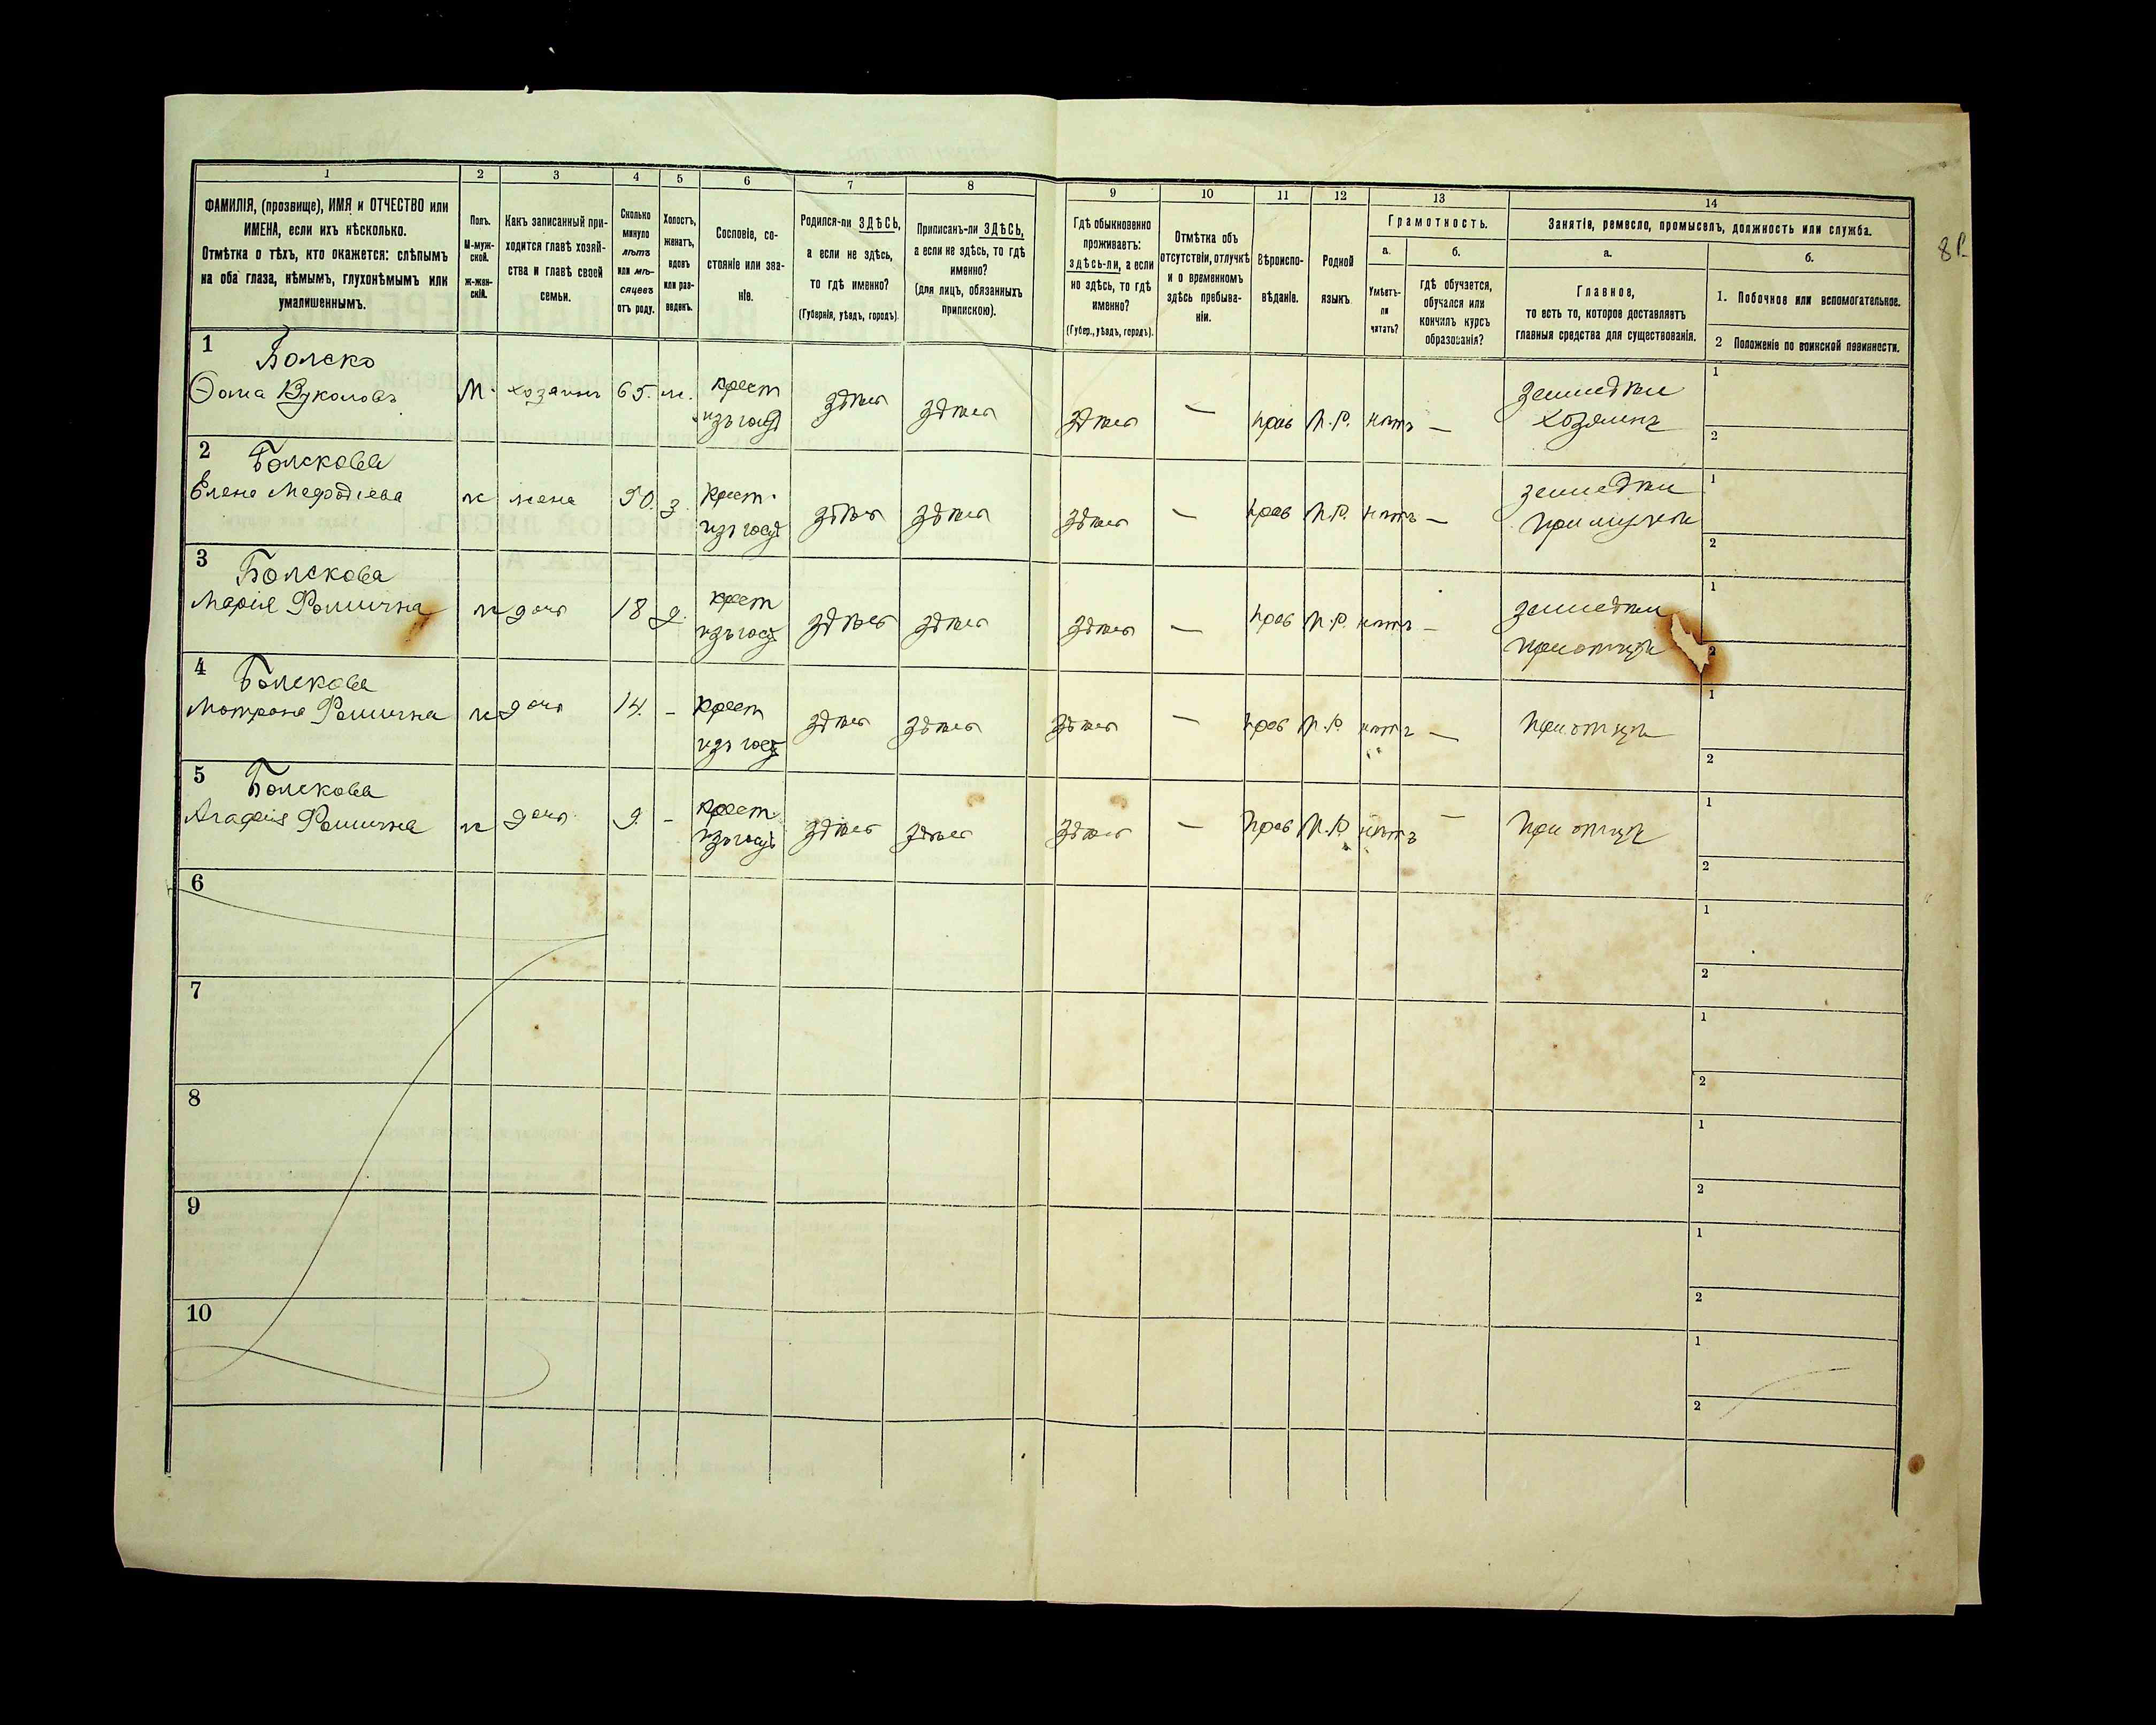 1 2 3 4 5 6 7 8 9 10 11 12 13 14
ФАМИЛІЯ, (прозвище), ИМЯ и ОТЧЕСТВО или
ИМЕНА, если ихъ нѣсколько.
Отмѣтка о тѣхъ, кто окажется: слѣпымъ
на оба глаза, нѣмымъ, глухонѣмымъ или
умалишеннымъ.
Полъ.
М-муж-
ской.
ж-жен-
скій.
Какъ записанный при-
ходится главѣ хозяй-
ства и главѣ своей
семьи.
Сколько
минуло
лѣтъ
или мѣ-
сяцевъ
отъ роду.
Холостъ,
женатъ,
вдовъ
или раз-
веденъ.
Сословіе, со-
стояніе или зва-
ніе.
Родился-ли ЗДѢСЬ,
а если не здѣсь,
то гдѣ именно?
(Губернія, уѣздъ, городъ).
Приписанъ-ли ЗДѢСЬ,
а если не здѣсь, то гдѣ
именно?
(для лицъ, обязанныхъ
припискою).
Гдѣ обыкновенно
проживаетъ:
здѣсь-ли, а если
не здѣсь, то гдѣ
именно?
(Губер., уѣздъ, городъ).
Отмѣтка объ
отсутствіи, отлучкѣ
и о временномъ
здѣсь пребыва-
ніи.
Вѣроиспо-
вѣданіе.
Родной
языкъ.
Грамотность.
а.
Умѣетъ-
ли
читать?
б.
гдѣ обучается,
обучался или
кончилъ курсъ
образованія?
Занятіе, ремесло, промыселъ, должность или служба.
а.
Главное,
то есть то, которое доставляетъ
главныя средства для существованія.
б.
1. Побочное или вспомогательное.
2 Положеніе по воинской повинности.
1
Ѳома Вуколовъ М. хозяинъ 65. ж. крест здѣсь здѣсь здѣсь — прав М.Р. нѣтъ —
хозяинъ
1
2
2
Елена Мефодіева ж жена 50. з. крест. здѣсь здѣсь здѣсь — прав М.Р. нѣтъ —
при мужѣ
1
2
3
Марія Фомична ж дочь 18 д. крест здѣсь здѣсь здѣсь — прав М.Р. нѣтъ —
при отцѣ
1
2
4
Матрона Фомична ж дочь 14. - крест здѣсь здѣсь здѣсь — прав М.Р. нѣтъ — при отцѣ
1
2
5
Агафія Фомична ж дочь 9. - крест здѣсь здѣсь здѣсь — прав М.Р. нѣтъ — при отцѣ
1
2
6
1
2
7
1
2
8
1
2
9
1
2
10
1
2